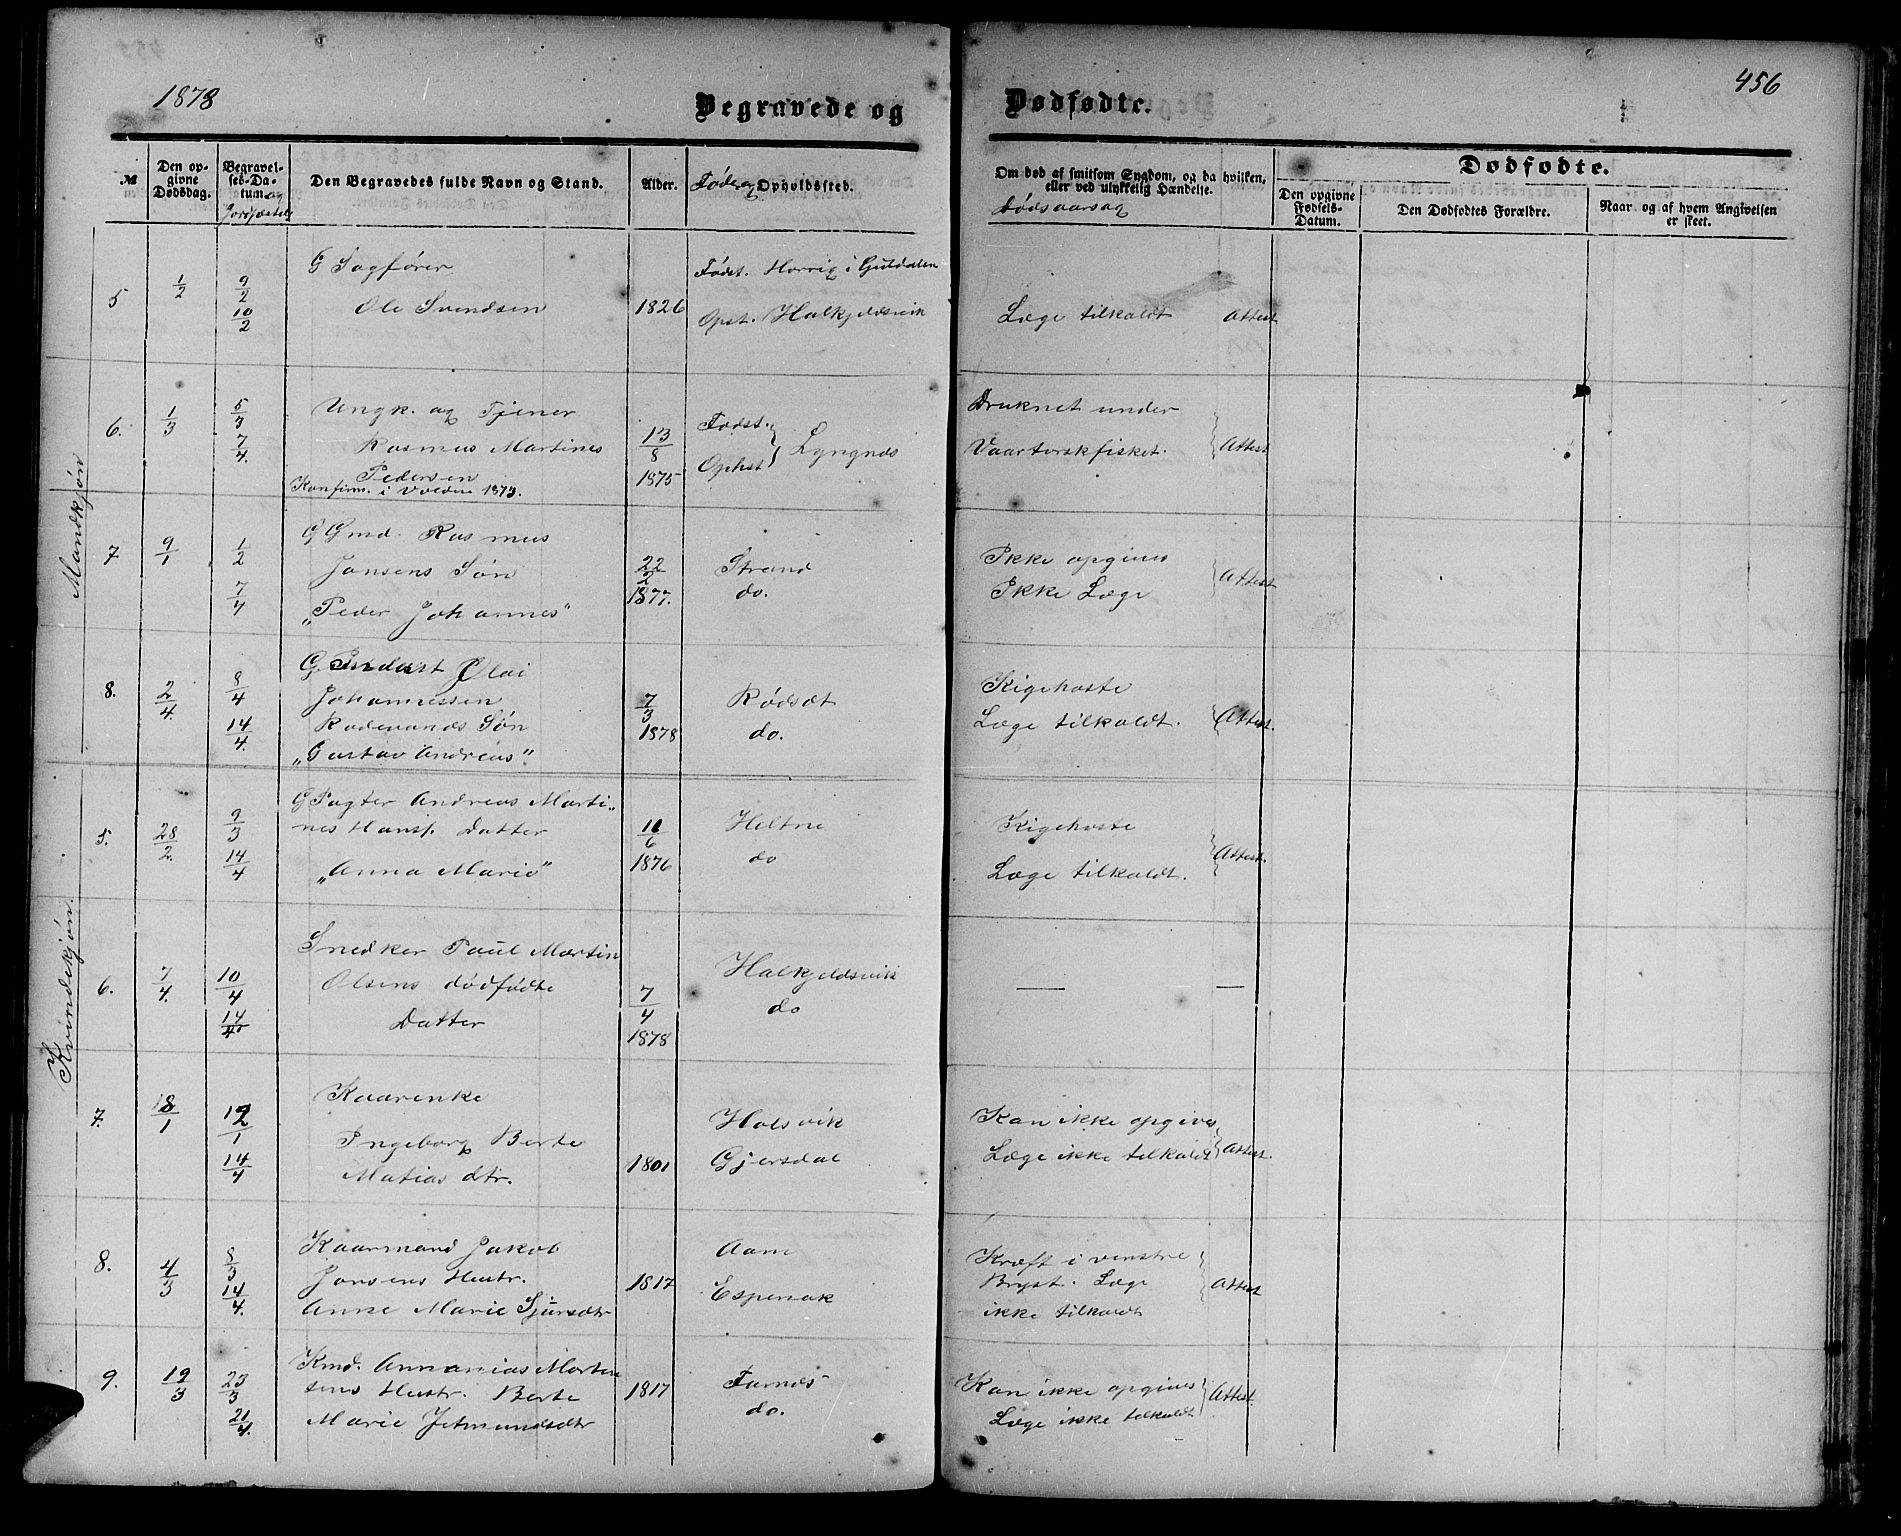 1878
456
Begravede og Dødfødte.
№
Den opgivne Dødsdag.
Begravelses-Datum og Jordfæstels
Den Begravedes fulde Navn og Stand.
Alder.
Føde og Opholdssted.
Om død af smitsom Sygdom, og da hvilken, eller ved ulykkelig Hændelse.
Dødsaarsag
Dødfødte.
Den opgivne Fødsels-Datum.
Den Dødfødtes Forældre.
Naar og af hvem Angivelsen er skeet.
Mandkjøn
5
1/2
9/2
10/2
G Sagfører
Ole Svendsen
1826
Fødst. Horrig i Guldalen
Opst. Halkjeldsvik
Læge tilkaldt
Attest
6.
1/3
5/3
7/4.
Ungk. og Tjener
Rasmus Martines
Pedersen
Konfirm. i Volden 1873.
13/8
1875
Fødst.
Ophst
Lyngnes
Druknet under
Vaartorskfisket.
Attest
7
9/1
1/2
7/4
G Gmd. Rasmus
Jonsens Søn
„Peder Johannes"
22/2
1877.
Strand
do.
Ikke opgives
Ikke Læge
Attest
8.
2/4.
8/4
14/4.
G. Olai
Johannessen
Rødevands Søn
„Gustav Andreas".
7/3
1878
Rødsæt
do.
Kigehoste
Læge tilkaldt.
Attest.
Kvindekjøn.
5.
28/2.
9/3
14/4
G Pagter Andreas Marti„
nes Hansf. Datter
„Anna Marie"
11/6
1876
Heltne
do
Kigehoste
Læge tilkaldt.
Attest.
6.
7/4.
10/4
14/4
Snedker Paul Martin
Olsens dødfødte
Datter
7/4
1878
Halkjeldsvik
do
7.
18/1
12/1
14/4
Kaarenke
Ingeborg Berte
Matias dtr.
1801
Halsvik
Gjersdal
Kan ikke opgives
Læge ikke tilkaldt
Attest.
8.
4/3
8/3
14/4.
Kaarmand Jakob
Jonsens Hustr.
Anne Marie Sjursdtr
1817
Aam
Espenak
Kræft i venstre
Bryst. Læge
ikke tilkaldt
Attest
9.
19/3
23/3
21/4.
Kmd. Annanias Marten
sens Hustr. Berte
Marie Jetmundsdtr
1817
Furnes
do.
Kan ikke opgives
Læge ikke tilkaldt
Attest.